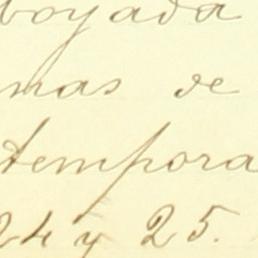 boyada
mas de
tempora
24 y 25.